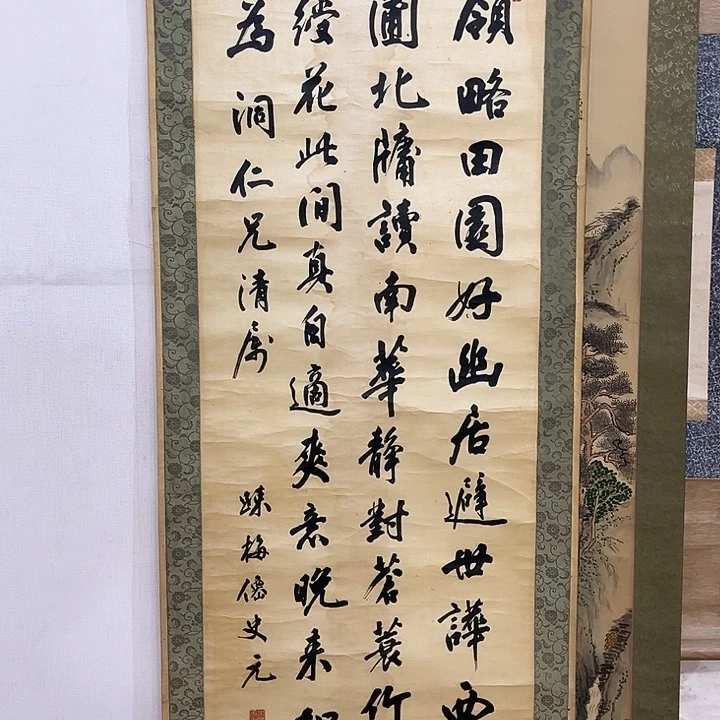 領略田園好幽居避世譁西
圃北牖讀南華靜對蒼竹
綬花此間真自適爽意晚来
為洞仁兄清屬
疎梅僊史元